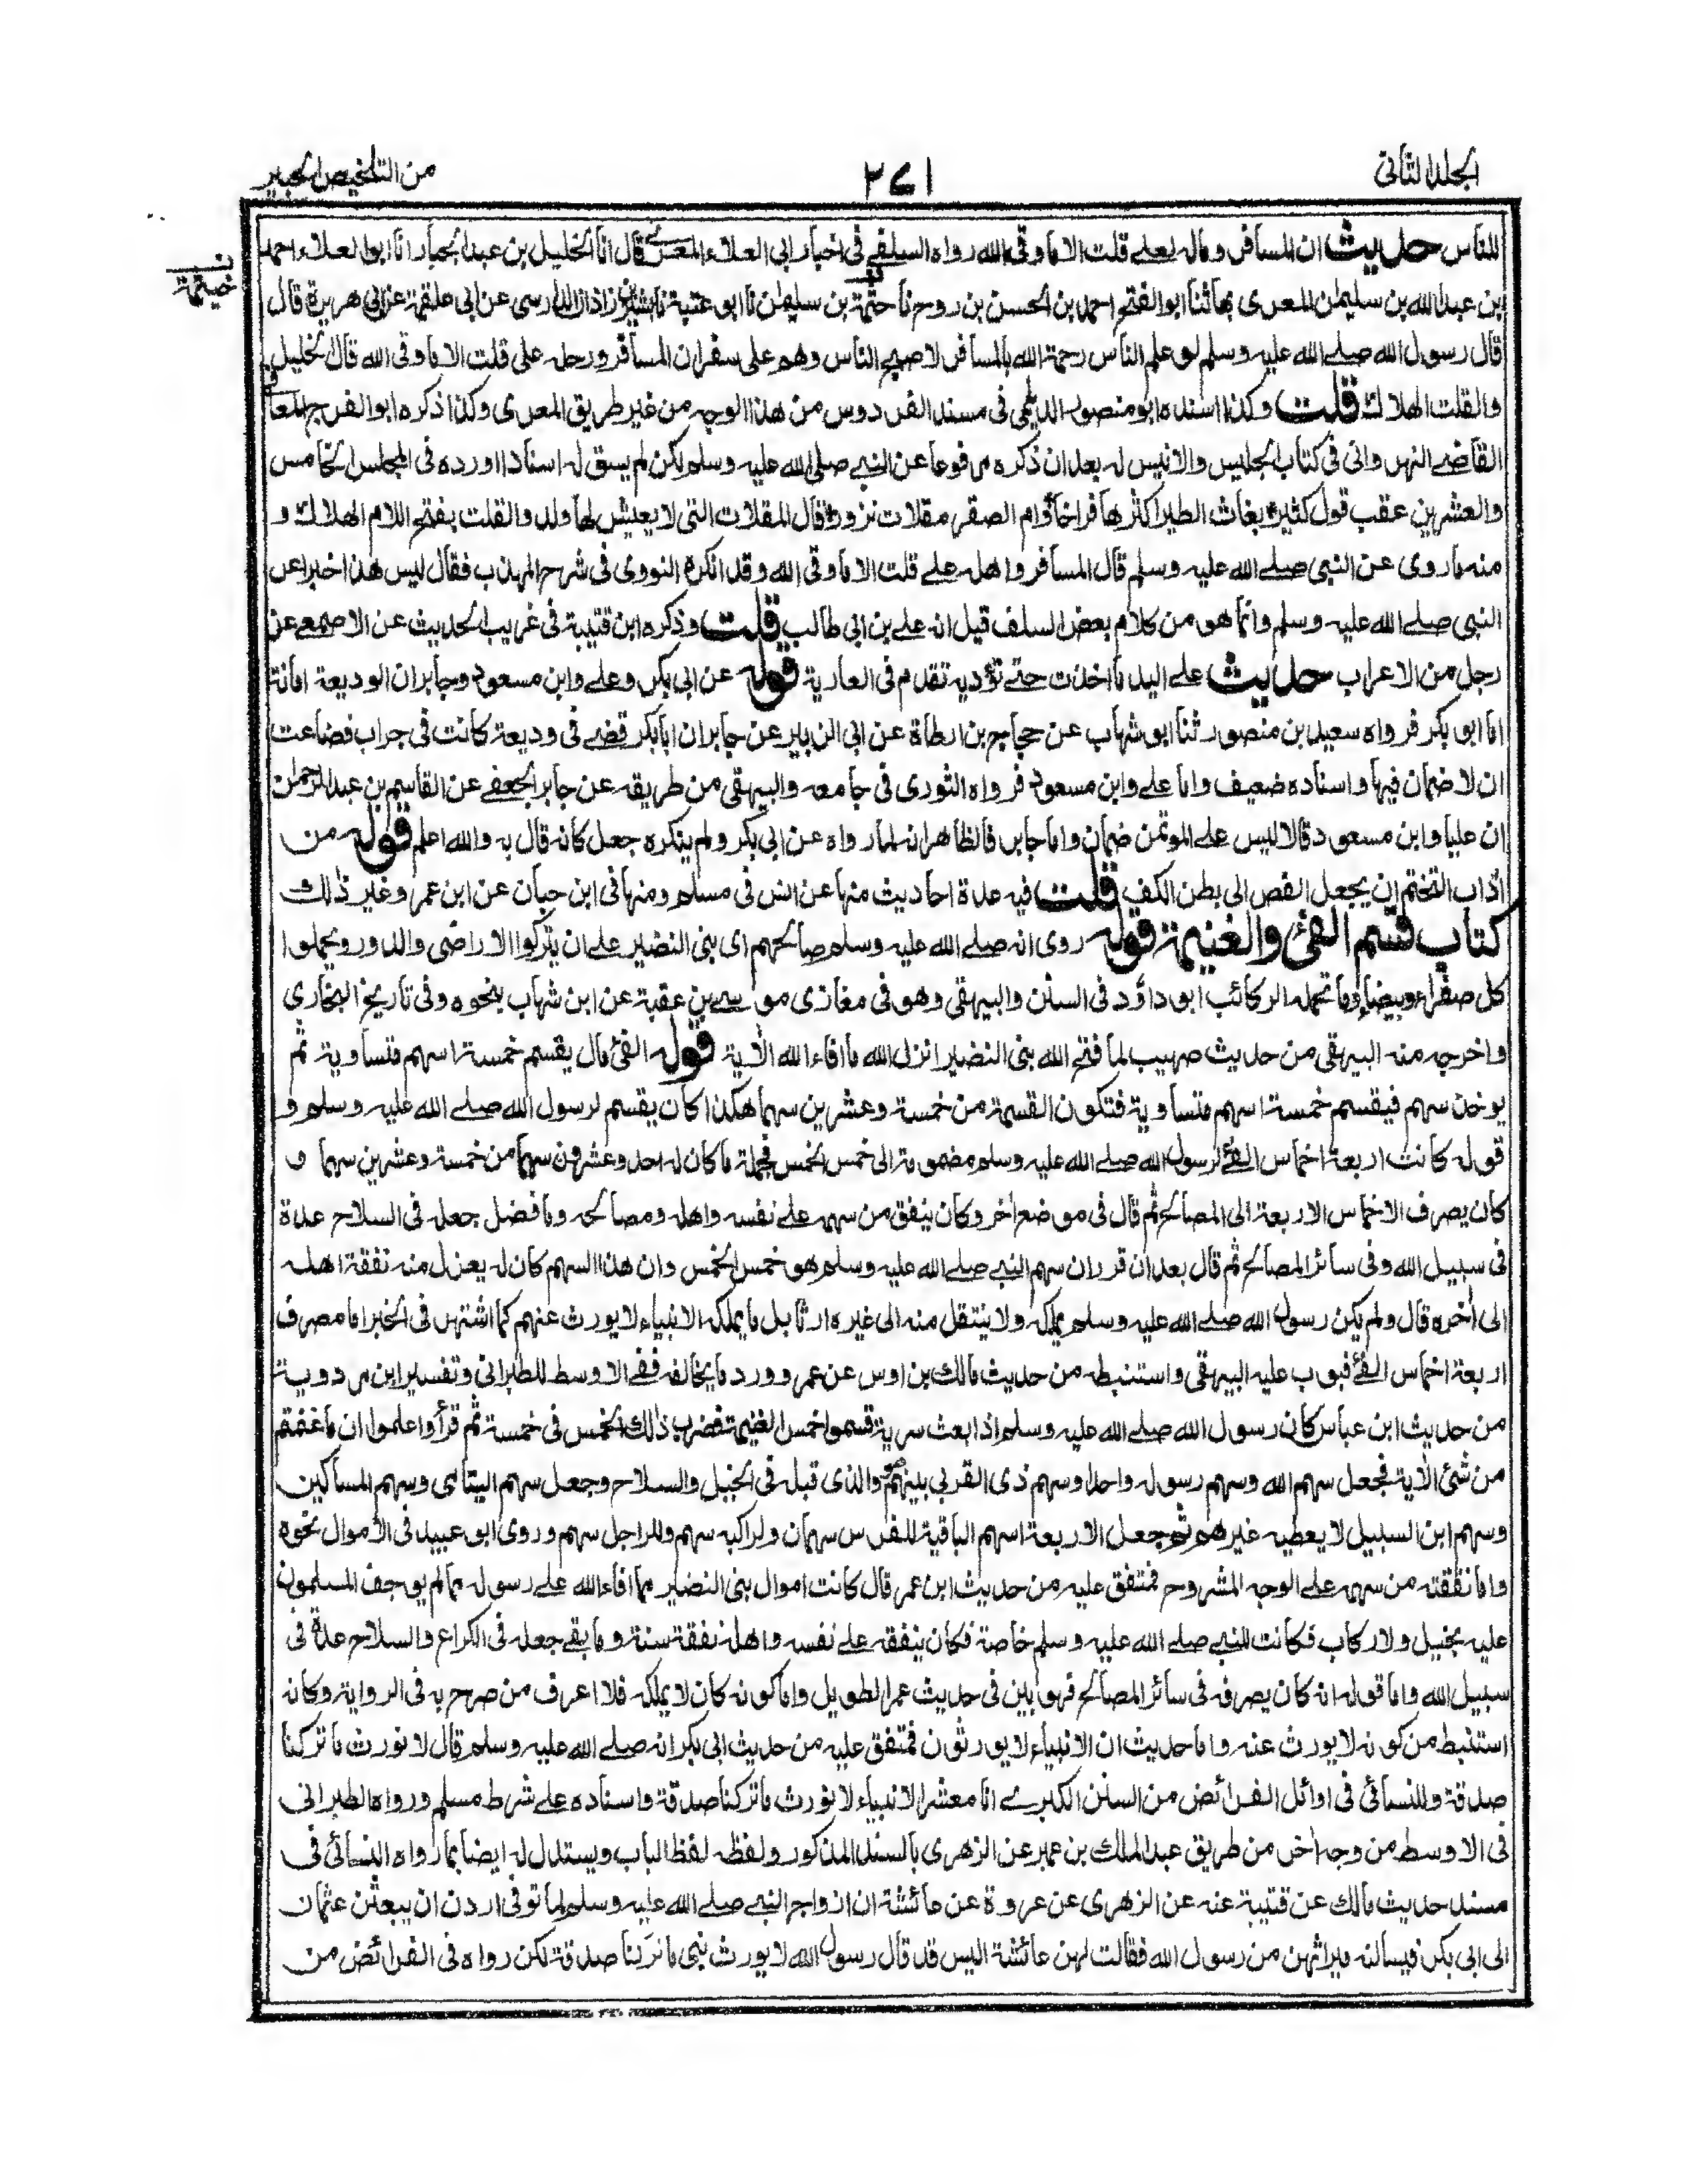 الجلد الثانی
۲۷۱
من التلخیص الحبیر
للناس حدیث ان المسافر وماله لعلے قلت الا ما وقی الله رواه السلفے فی اخبار ابی العلاء المعری قال انا الخلیل بن عبد الجبار انا ابو العلاء احمد
بن عبد الله بن سلیمٰن المعری بها ثنا ابو الفتح احمد بن الحسن بن روح نا خیثمة بن سلیمٰن نا ابو عتبة نا بشیر بن زاذان الدارسی عن ابی علقمة عن ابی هریرة قال
خیثمة
قال رسول الله صلے الله علیه وسلم لو علم الناس رحمة الله بالمسافر لاصبح الناس وهم علی سفر ان المسافر ورحله علی قلت الا ما وقی الله قال الخلیل
والقلت الهلاك قلت وکذا اسنده ابو منصور الدیلمی فی مسند الفردوس من هذا الوجه من غیر طریق المعری وکذا ذکره ابو الفرج المعافا
القاضے النهروانی فی کتاب الجلیس والانیس له بعد ان ذکره مرفوعا عن النبی صلی الله علیه وسلم لکن لم یسق له اسنادا اورده فی المجلس الخامس
والعشرین عقب قول کثیر بغاث الطیر اکثرها فراخا وام الصقر مقلات نزور قال المقلات التی لا یعیش لها ولد والقلت بفتح اللام الهلاك و
منه ما روی عن النبی صلے الله علیه وسلم قال المسافر واهله علے قلت الا ما وقی الله وقد انکره النووی فی شرح المهذب فقال لیس هذا خبرا عن
النبی صلے الله علیه وسلم وانما هو من کلام بعض السلف قیل انه علے بن ابی طالب قلت وذکره ابن قتیبة فی غریب الحدیث عن الاصمعے عن
رجل من الاعراب حدیث علے الید ما اخذت حتے تؤدیه تقدم فی العاریة قوله عن ابی بکر وعلے وابن مسعود وجابر ان الودیعة امانة
اما ابو بکر فرواه سعید بن منصور ثنا ابو شهاب عن حجاج بن ارطاة عن ابی الزبیر عن جابر ان ابا بکر قضے فی ودیعة کانت فی جراب فضاعت
ان لا ضمان فیها واسناده ضعیف واما علے وابن مسعود فرواه الثوری فی جامعه والبیهقی من طریقه عن جابر الجعفے عن القاسم بن عبد الرحمٰن
ان علیا وابن مسعود قالا لیس علے الموتمن ضمان واما جابر فالظاهر انه لما رواه عن ابی بکر ولم ینکره جعل کانه قال به والله اعلم قوله من
اٰداب التختم ان یجعل الفص الی بطن الکف قلت فیه عدة احادیث منها عن انس فی مسلم ومنها فی ابن حبان عن ابن عمر وغیر ذٰلك
کتاب قسم الفئ والغنیمة قوله روی انه صلے الله علیه وسلم صالحهم ای بنی النضیر علے ان یترکوا الاراضی والدور ویحملوا
کل صفراء وبیضاء وما تحمله الرکائب ابو داؤد فی السنن والبیهقی وهو فی مغازی موسے بن عقبة عن ابن شهاب بنحوه وفی تاریخ البخاری
واخرجه منه البیهقی من حدیث صهیب لما فتح الله بنی النضیر انزل الله ما افاء الله الاٰیة قوله الفئ مال یقسم خمسة اسهم متساویة ثم
یوخذ سهم فیقسم خمسة اسهم متساویة فتکون القسمة من خمسة وعشرین سهما هکذا کان یقسم لرسول الله صلے الله علیه وسلم و
قوله کانت اربعة اخماس الفئ لرسول الله صلے الله علیه وسلم مضمومة الی خمس الخمس فجملة ما کان له احد وعشرون سهما من خمسة وعشرین سهما و
کان یصرف الاخماس الاربعة الی المصالح ثم قال فی موضع اٰخر وکان ینفق من سهمه علے نفسه واهله ومصالحه وما فضل جعله فی السلاح عدة
فی سبیل الله وفی سائر المصالح ثم قال بعد ان قرر ان سهم النبی صلے الله علیه وسلم هو خمس الخمس وان هذا السهم کان له یعزل منه نفقة اهله
الی اٰخره قال ولم یکن رسول الله صلے الله علیه وسلم یملکه ولا ینتقل منه الی غیره ارثا بل ما یملکه الانبیاء لا یورث عنهم کما اشتهر فی الخبر اما مصرف
اربعة اخماس الفئ فبوب علیه البیهقی واستنبطه من حدیث مالك بن اوس عن عمر وورد ما یخالفه ففے الاوسط للطبرانی وتفسیر ابن مردویة
من حدیث ابن عباس کان رسول الله صلے الله علیه وسلم اذا بعث سریة قسموا خمس الغنیمة فضرب ذٰلك الخمس فی خمسة ثم قرأ واعلموا ان ما غنمتم
من شئ الاٰیة فجعل سهم الله وسهم رسوله واحدا وسهم ذی القربی بینهم هو والذی قبله فی الخیل والسلاح وجعل سهم الیتامی وسهم المساکین
وسهم ابن السبیل لا یعطیه غیرهم ثم جعل الاربعة اسهم الباقیة للفرس سهمان ولراکبه سهم وللراجل سهم وروی ابو عبید فی الاموال نحوه
واما نفقته من سهمه علے الوجه المشروح فمتفق علیه من حدیث ابن عمر قال کانت اموال بنی النضیر مما افاء الله علے رسوله مما لم یوجف المسلمون
علیه بخیل ولا رکاب فکانت للنبی صلے الله علیه وسلم خاصة فکان ینفقه علے نفسه واهله نفقة سنة وما بقے جعله فی الکراع والسلاح عدة فی
سبیل الله واما قوله انه کان یصرفه فی سائر المصالح فهو بین فی حدیث عمر الطویل واما کونه کان لا یملکه فلا اعرف من صرح به فی الروایة وکانه
استنبط من کونه لا یورث عنه واما حدیث ان الانبیاء لا یورثون فمتفق علیه من حدیث ابی بکر انه صلے الله علیه وسلم قال لا نورث ما ترکنا
صدقة وللنسائی فی اوائل الفرائض من السنن الکبرے انا معشر الانبیاء لا نورث ما ترکنا صدقة واسناده علے شرط مسلم ورواه الطبرانی
فی الاوسط من وجه اٰخر من طریق عبد الملك بن عمیر عن الزهری بالسند المذکور ولفظه لفظ الباب ویستدل له ایضا بما رواه النسائی فی
مسند حدیث مالك عن قتیبة عنه عن الزهری عن عروة عن عائشة ان ازواج النبی صلے الله علیه وسلم لما توفی اردن ان یبعثن عثمان
الی ابی بکر فیسالنه میراثهن من رسول الله فقالت لهن عائشة الیس قد قال رسول الله لا یورث نبی ما ترکنا صدقة لکن رواه فی الفرائض من